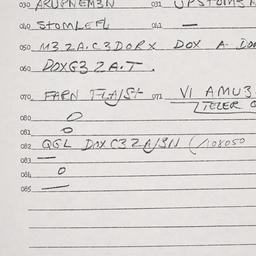 030 ARUPNEM3N 031 UPSTOME
040 STOMLEFL 041 —
050 M3 2A.C3DORX DOX A DO
060 DOXG3 2A.T.
070 FAPN 071 VI AMU3
TELER
080 0
081 0
082 QGL DAX C3 2A/3N (/0X050
083 —
084 0
085 —